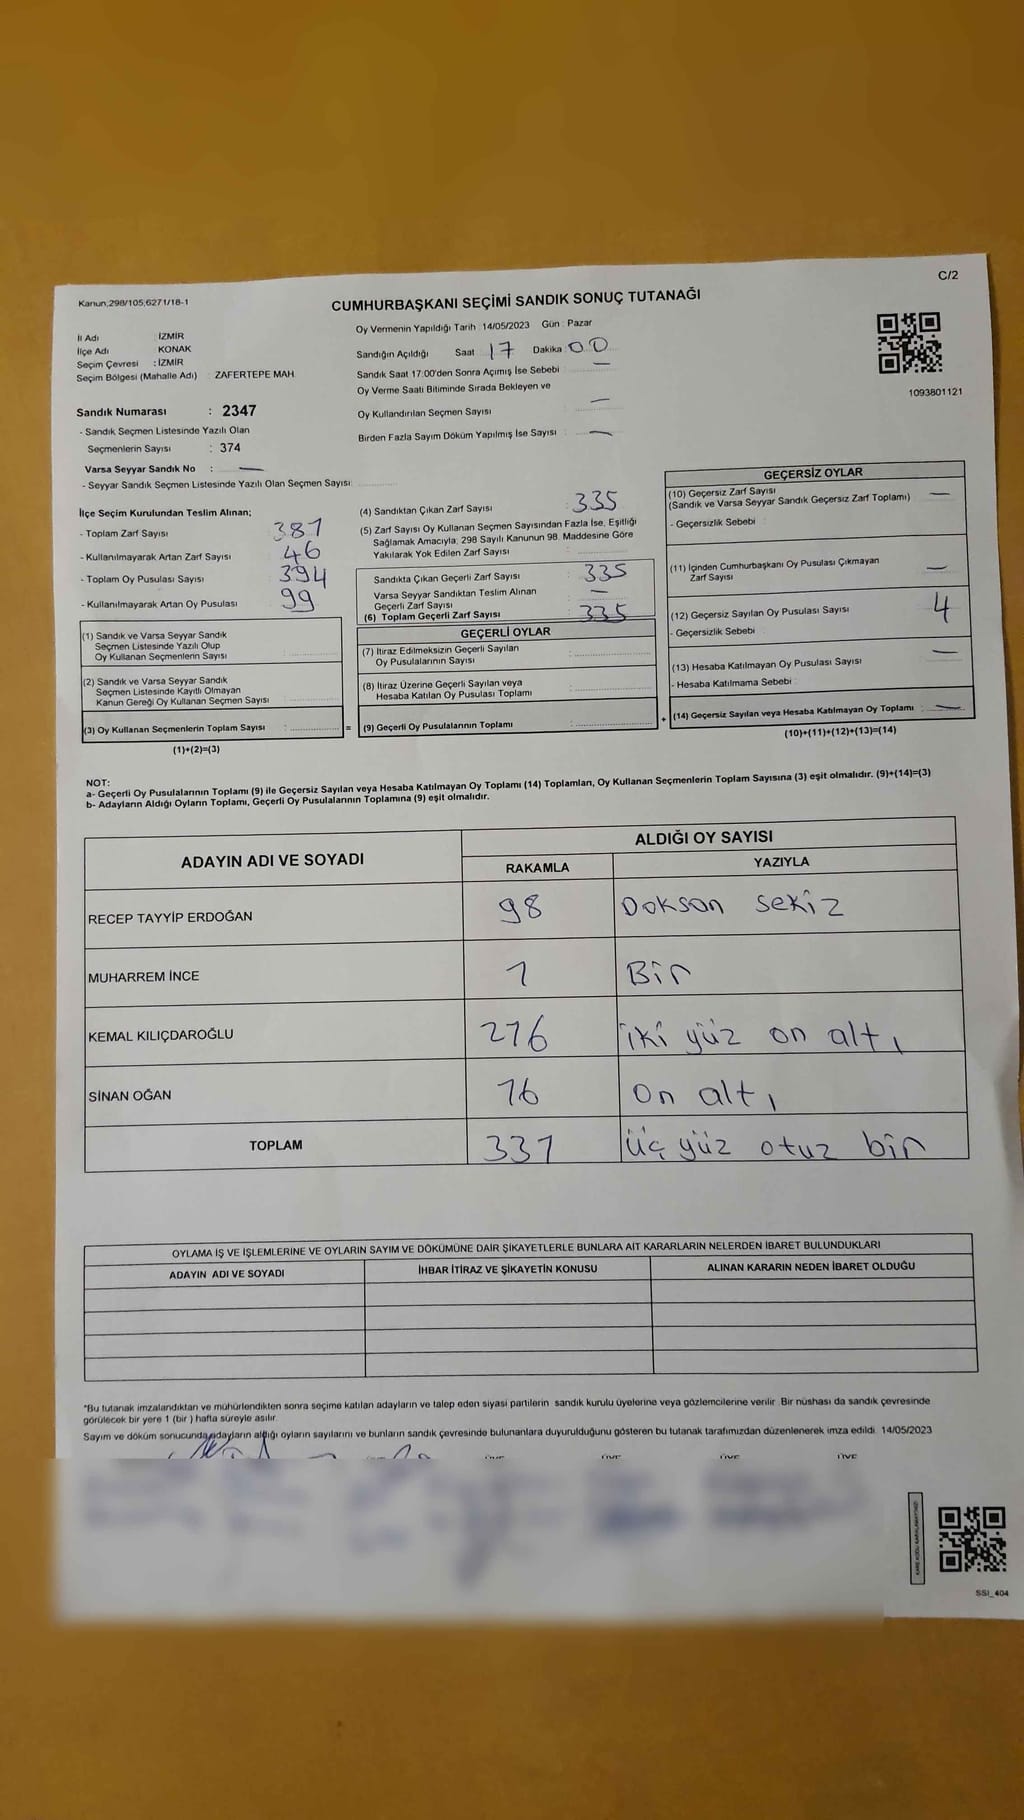 C/2
Kanun,298/105,6271/18-1
CUMHURBAŞKANI SEÇİMİ SANDIK SONUÇ TUTANAĞI
İl Adı : İZMİR
İlçe Adı : KONAK
Seçim Çevresi : İZMİR
Seçim Bölgesi (Mahalle Adı) : ZAFERTEPE MAH.
Oy Vermenin Yapıldığı Tarih : 14/05/2023 Gün : Pazar
Sandığın Açıldığı Saat : 17 Dakika : 00
Sandık Saat 17:00'den Sonra Açımış İse Sebebi : —
Oy Verme Saati Bitiminde Sırada Bekleyen ve
Oy Kullandırılan Seçmen Sayısı : —
Birden Fazla Sayım Döküm Yapılmış İse Sayısı : —
1093801121
Sandık Numarası : 2347
- Sandık Seçmen Listesinde Yazılı Olan
Seçmenlerin Sayısı : 374
Varsa Seyyar Sandık No : —
- Seyyar Sandık Seçmen Listesinde Yazılı Olan Seçmen Sayısı:
İlçe Seçim Kurulundan Teslim Alınan;
- Toplam Zarf Sayısı : 381
- Kullanılmayarak Artan Zarf Sayısı : 46
- Toplam Oy Pusulası Sayısı : 394
- Kullanılmayarak Artan Oy Pusulası : 99
(1) Sandık ve Varsa Seyyar Sandık
Seçmen Listesinde Yazılı Olup
Oy Kullanan Seçmenlerin Sayısı :
(2) Sandık ve Varsa Seyyar Sandık
Seçmen Listesinde Kayıtlı Olmayan
Kanun Gereği Oy Kullanan Seçmen Sayısı :
(3) Oy Kullanan Seçmenlerin Toplam Sayısı :
(1)+(2)=(3)
(4) Sandıktan Çıkan Zarf Sayısı : 335
(5) Zarf Sayısı Oy Kullanan Seçmen Sayısından Fazla İse, Eşitliği
Sağlamak Amacıyla; 298 Sayılı Kanunun 98. Maddesine Göre
Yakılarak Yok Edilen Zarf Sayısı :
Sandıkta Çıkan Geçerli Zarf Sayısı : 335
Varsa Seyyar Sandıktan Teslim Alınan
Geçerli Zarf Sayısı : —
(6) Toplam Geçerli Zarf Sayısı : 335
GEÇERLİ OYLAR
(7) İtiraz Edilmeksizin Geçerli Sayılan
Oy Pusulalarının Sayısı :
(8) İtiraz Üzerine Geçerli Sayılan veya
Hesaba Katılan Oy Pusulası Toplamı :
= (9) Geçerli Oy Pusulalarının Toplamı :
GEÇERSİZ OYLAR
(10) Geçersiz Zarf Sayısı : —
(Sandık ve Varsa Seyyar Sandık Geçersiz Zarf Toplamı)
- Geçersizlik Sebebi :
(11) İçinden Cumhurbaşkanı Oy Pusulası Çıkmayan
Zarf Sayısı : —
(12) Geçersiz Sayılan Oy Pusulası Sayısı : 4
- Geçersizlik Sebebi :
(13) Hesaba Katılmayan Oy Pusulası Sayısı : —
- Hesaba Katılmama Sebebi :
+ (14) Geçersiz Sayılan veya Hesaba Katılmayan Oy Toplamı : —
(10)+(11)+(12)+(13)=(14)
NOT:
a- Geçerli Oy Pusulalarının Toplamı (9) ile Geçersiz Sayılan veya Hesaba Katılmayan Oy Toplamı (14) Toplamları, Oy Kullanan Seçmenlerin Toplam Sayısına (3) eşit olmalıdır. (9)+(14)=(3)
b- Adayların Aldığı Oyların Toplamı, Geçerli Oy Pusulalarının Toplamına (9) eşit olmalıdır.
ADAYIN ADI VE SOYADI ALDIĞI OY SAYISI
RAKAMLA YAZIYLA
RECEP TAYYİP ERDOĞAN 98 Doksan sekiz
MUHARREM İNCE 1 Bir
KEMAL KILIÇDAROĞLU 216 iki yüz on altı
SİNAN OĞAN 16 on altı
TOPLAM 331 üç yüz otuz bir
OYLAMA İŞ VE İŞLEMLERİNE VE OYLARIN SAYIM VE DÖKÜMÜNE DAİR ŞİKAYETLERLE BUNLARA AİT KARARLARIN NELERDEN İBARET BULUNDUKLARI
ADAYIN ADI VE SOYADI İHBAR İTİRAZ VE ŞİKAYETİN KONUSU ALINAN KARARIN NEDEN İBARET OLDUĞU
*Bu tutanak imzalandıktan ve mühürlendikten sonra seçime katılan adayların ve talep eden siyasi partilerin sandık kurulu üyelerine veya gözlemcilerine verilir. Bir nüshası da sandık çevresinde
görülecek bir yere 1 (bir ) hafta süreyle asılır.
Sayım ve döküm sonucunda adayların aldığı oyların sayılarını ve bunların sandık çevresinde bulunanlara duyurulduğunu gösteren bu tutanak tarafımızdan düzenlenerek imza edildi. 14/05/2023
SSI_404